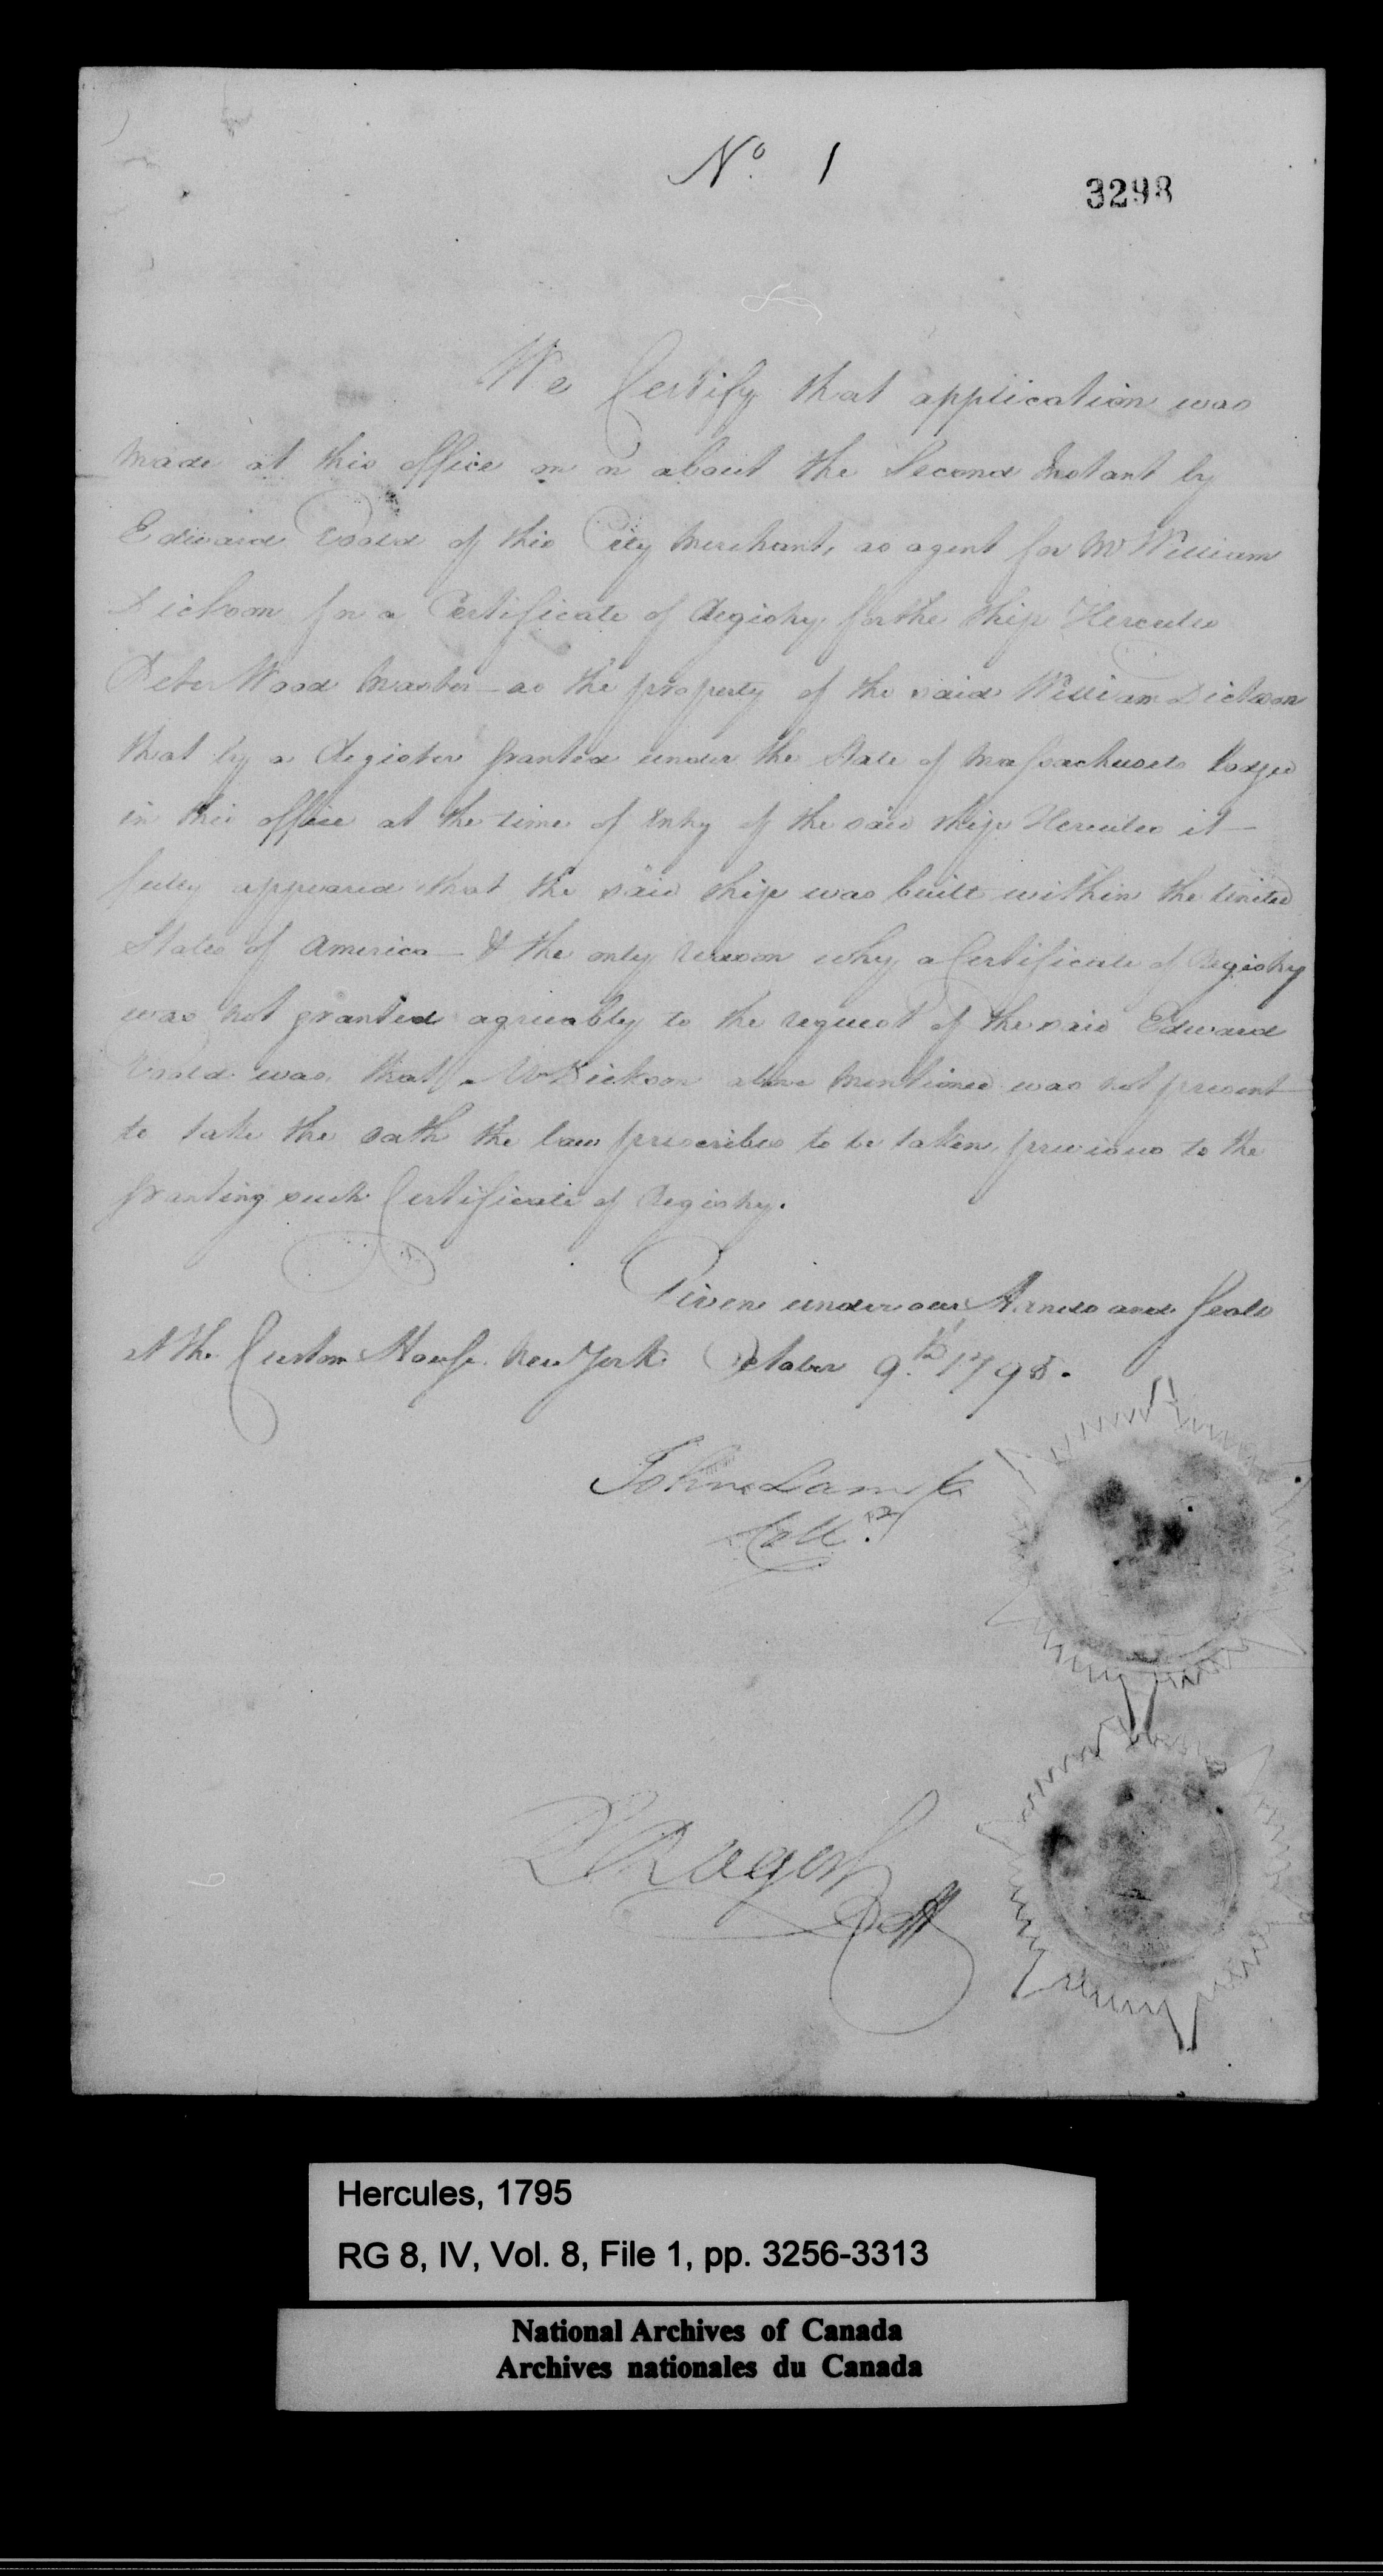 No. 1
3298
We Certify that application was
made at this office on or about the Second Instant by
Edward Goold of this City Merchant, as agent for Mr William
Dickson for a Certificate of Registry for the Ship Hercules
Peter Wood Master - as the property of the said William Dickson
that by a Register granted under the State of Massachusets lodged
in this office at the time of Entry of the said ship Hercules it -
fully appeared that the said ship was built within the United
States of America - & the only reason why a Certificate of Registry
was not granted agreeably to the request of the said Edward
Goold was, that Mr Dickson above mentioned was not present
to take the oath the law prescribes to be taken previous to the
granting such Certificate of Registry.
Given under our Hands and Seals
at the Custom House New York October 9th 1795.
John Lamb
Collr.
Hercules, 1795
RG 8, IV, Vol. 8, File 1, pp. 3256-3313
National Archives of Canada
Archives nationales du Canada